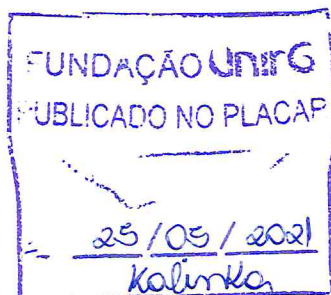 FUNDAÇÃO UnirG
PUBLICADO NO PLACAR
25/05/2021
Kalinka